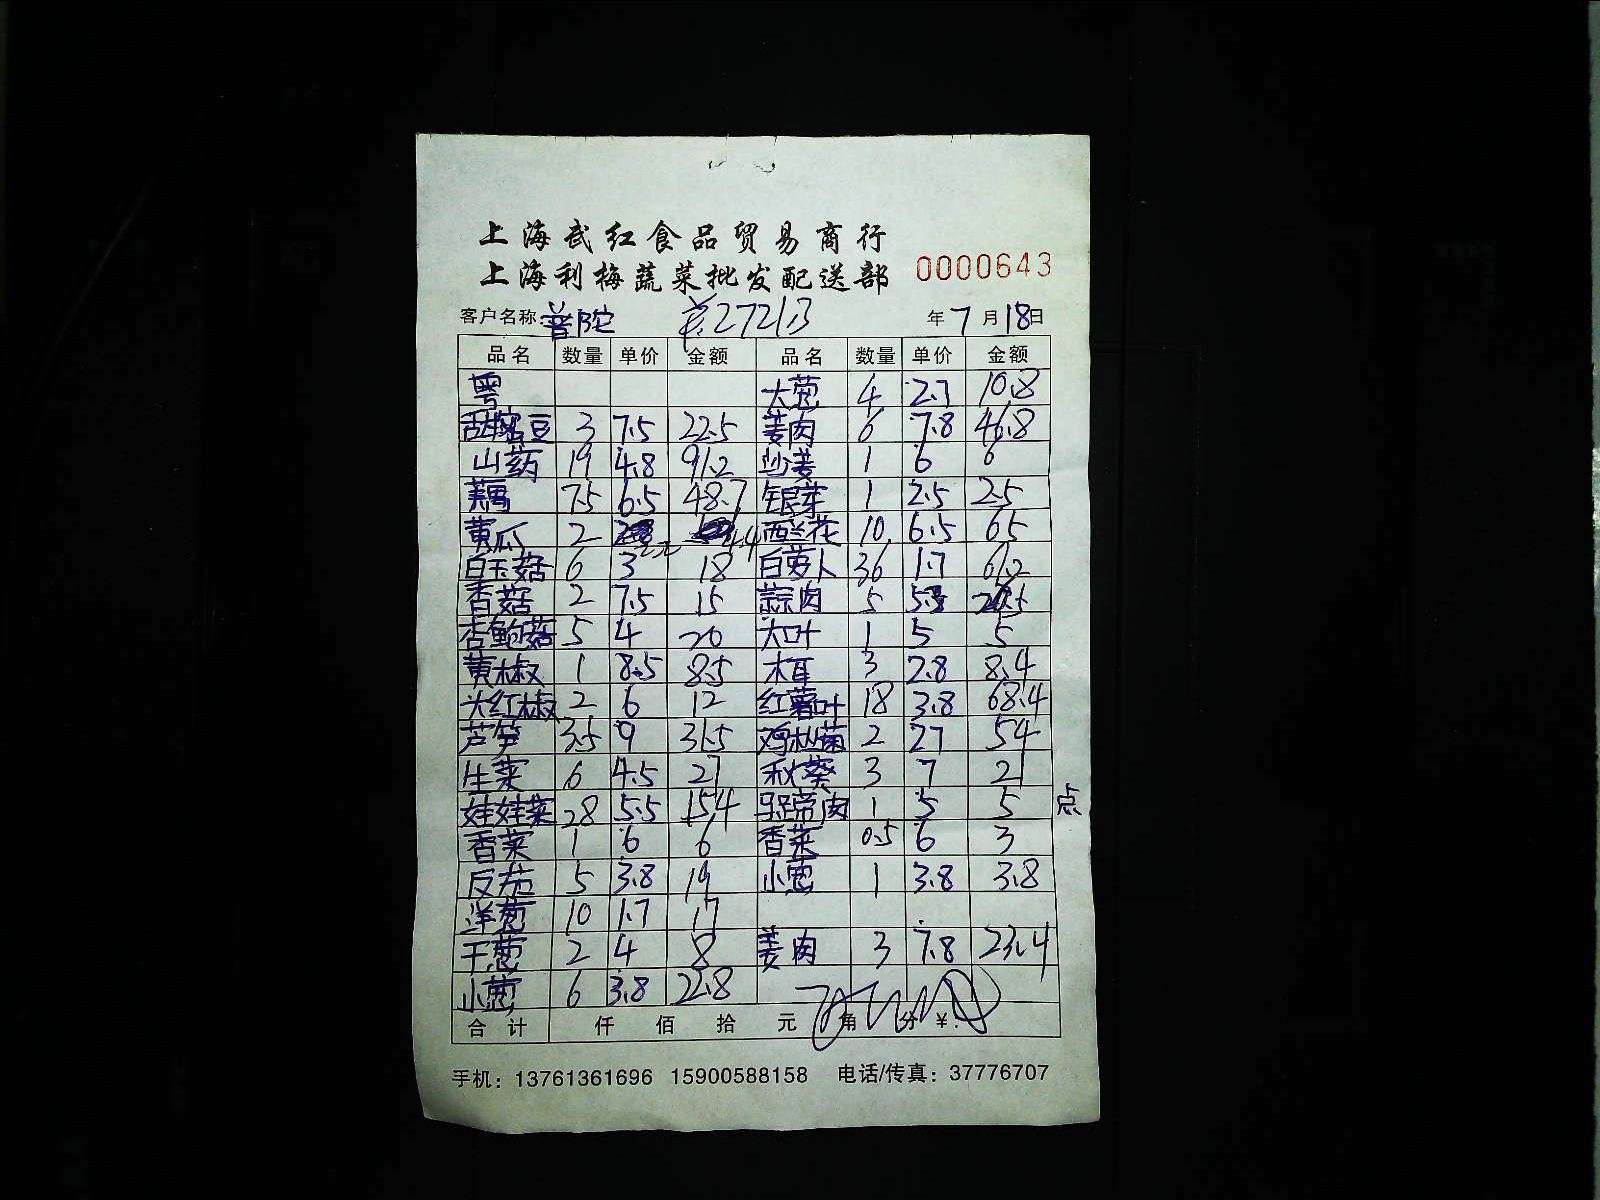 上海武红食品贸易商行
上海利梅蔬菜批发配送部 0000643
客户名称: 普陀 单27213 年 7 月 18 日
品名 数量 单价 金额 品名 数量 单价 金额
粤 大葱 4 2.7 10.8
甜蜜豆 3 7.5 22.5 姜肉 6 7.8 46.8
山药 19 4.8 91.2 沙姜 1 6 6
藕 7.5 6.5 48.7 银芽 1 2.5 2.5
黄瓜 2 2.2 4.4 西兰花 10 6.5 65
白玉菇 6 3 18 白萝卜 36 1.7 61.2
香菇 2 7.5 15 蒜肉 5
杏鲍菇 5 4 20 大叶 1 5 5
黄椒 1 8.5 8.5 木耳 3 2.8 8.4
大红椒 2 6 12 红薯叶 18 3.8 68.4
芦笋 3.5 9 31.5 鸡枞菌 2 27 54
生菜 6 4.5 27 秋葵 3 7 21
娃娃菜 28 5.5 154 马蹄肉 1 5 5 点
香菜 1 6 6 香菜 0.5 6 3
反茄 5 3.8 19 小葱 1 3.8 3.8
洋葱 10 1.7 17
干葱 2 4 8 姜肉 3 7.8 23.4
小葱 6 3.8 22.8
合计 仟 佰 拾 元 角 分 ¥:
手机: 13761361696 15900588158 电话/传真: 37776707